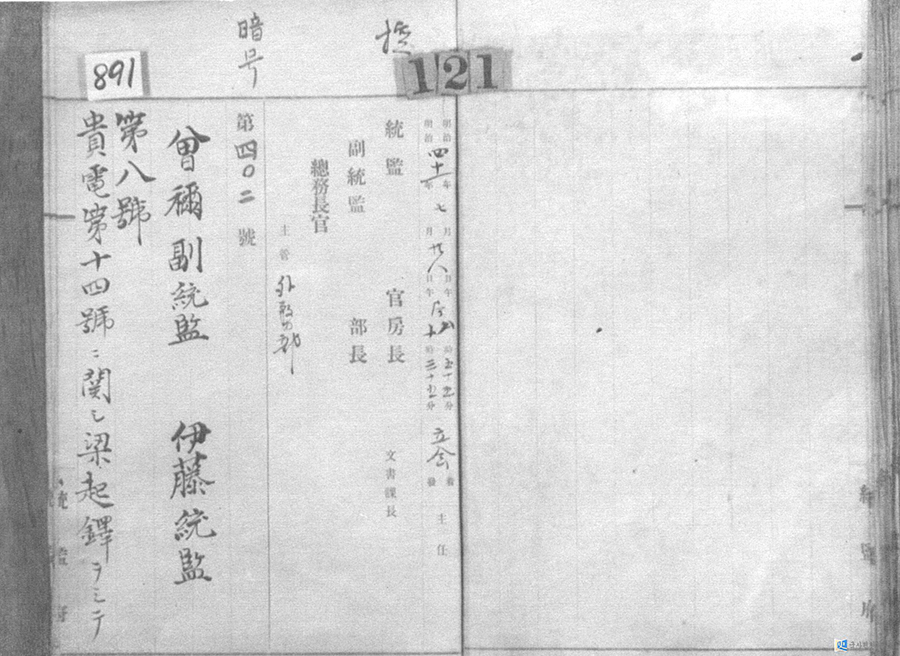 121
控
暗号
891
明治 年 月 日午 時五十五分 着
明治四十一年七月廿八日午后十時三十五分 立会 發 主任
統監 官房長 文書課長
副統監 部長
總務長官
主管 外務部
第四〇二號
曾禰副統監 伊藤統監
第八號
貴電第十四號ニ関シ梁起鐸ヲシテ
統監府